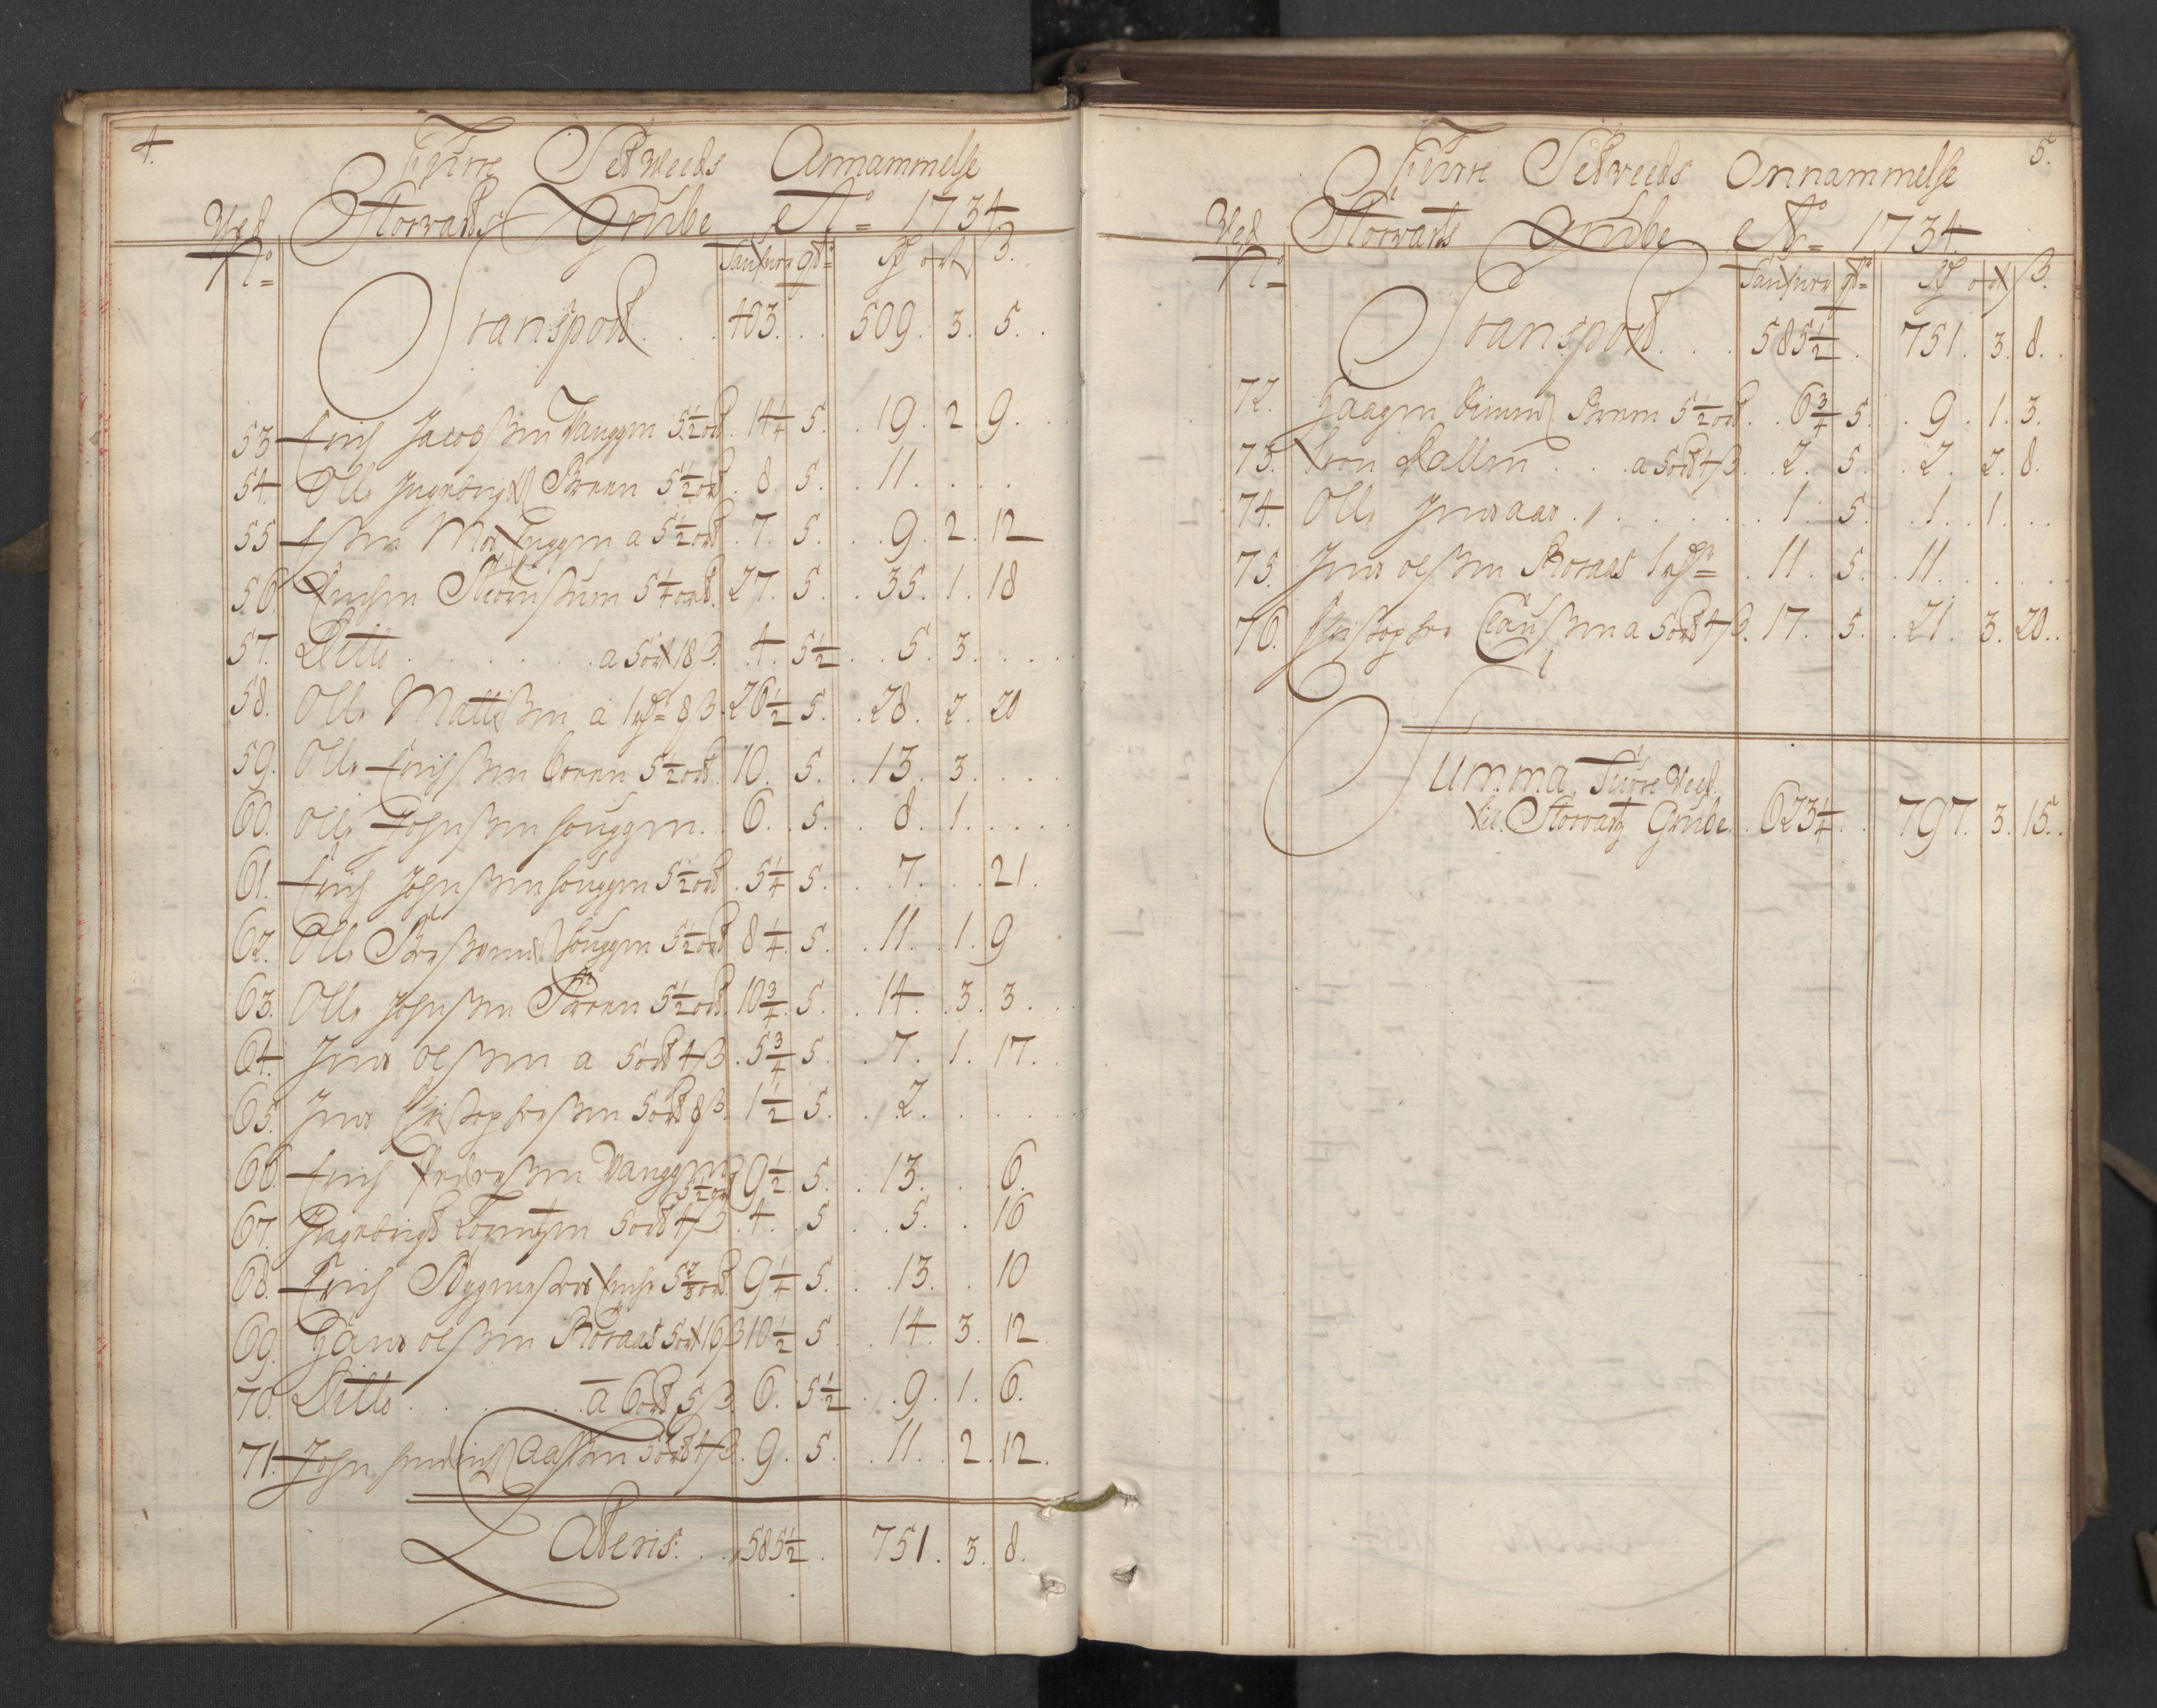 4.
Furre Setweeds Annammelse
Ved Storvarts Grube Ao 1734
No Rdr ort ß.
Transport . . 403. . . 509. 3. 5.
53 Erich Jacobsen Vauggen 5½ ort. 14¼ 5. 19. 2 9.
54. Olle Ingebrigts Breen 5½ ort. 8. 5. 11. . .
55 a 5½ ort. 7. 5. 9. 2. 12
56. 5¼ ort. 27. 5. 35. 1. 18
57. Ditto . . . a 5 ort 18 ß. 4. 5½ 5. 3. . .
58. Olle Mattissen a 1 rdr 8 ß. 26½ 5. 28. 2. 20
59. Olle Erichssen 5½ ort. 10. 5. 13. 3. . .
60. Olle Johnssen Houggen. . 6. 5. 8. 1. . .
61. Erich Johnssen Houggen 5½ ort. 5¼ 5. 7. . 21.
62. Olle Houggen 5½ ort 8¼. 5. 11. 1. 9
63. Olle Johnssen Breen 5½ ort. 10¾. 5. 14. 3. 3
64. Jens Olssen a 5 ort 4 ß. 5¾ 5. 7. 1. 17.
65. Jens Christophersen 5 ort 8 ß. 1½ 5. 2. . .
66. Erich Pedersen Vauggen 5½ ort 9½. 5. 13. . 6.
67. Ingebrigt Lorntzen 5 ort 4 ß. 4. 5 5. . 16
68. Erich 5⅔ ort. 9¼ 5. 13. . 10
69. Hans Olssen Roraas 5 ort 16 ß 10½ 5 14. 3. 12
70. Ditto . . . a 6 ort 5 ß. 6. 5½ 9. 1. 6.
71. John Aassen 5 ort 4 ß. 9. 5. 11. 2. 12.
Lateris. . . 585½. 751. 3. 8.
5.
Furre Setveeds Annammelse
Ved Storvarts Grube Ao 1734
No Rdr ort ß.
Transport . . . 585½. 751. 3. 8.
72. Haagen Breen 5½ ort. 6¾ 5. 9. 1. 3.
73. Dallen . . a 5 ort 4 ß. 2. 5. 2. 2. 8.
74. Olle . . . 1. 5. 1. 1. . .
75. Jens Olssen Roraas 1 rdr 11. 5. 11. . .
76. Christopher Claussen a 5 ort 4 ß. 17. 5. 21. 3. 20.
Summa Furre Veed
til Storvartz Grube. 623¼. . 797. 3. 15.